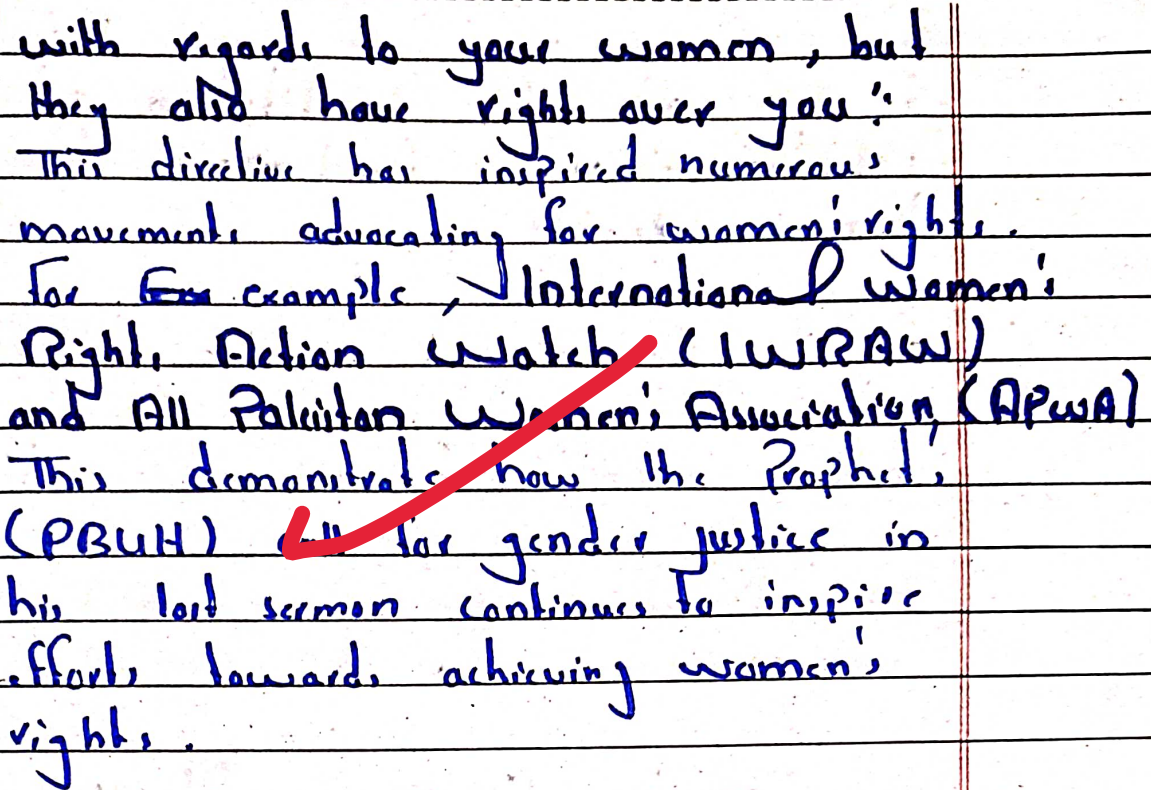 with regards to your women, but
they also have rights over you".
This directive has inspired numerous
movements advocating for women's rights.
For example, International Women's
Rights Action Watch (IWRAW)
and All Pakistan Women's Association, (APWA)
This demonstrate how the Prophet's
(PBUH) call for gender justice in
his last sermon continues to inspire
efforts towards achieving women's
rights.